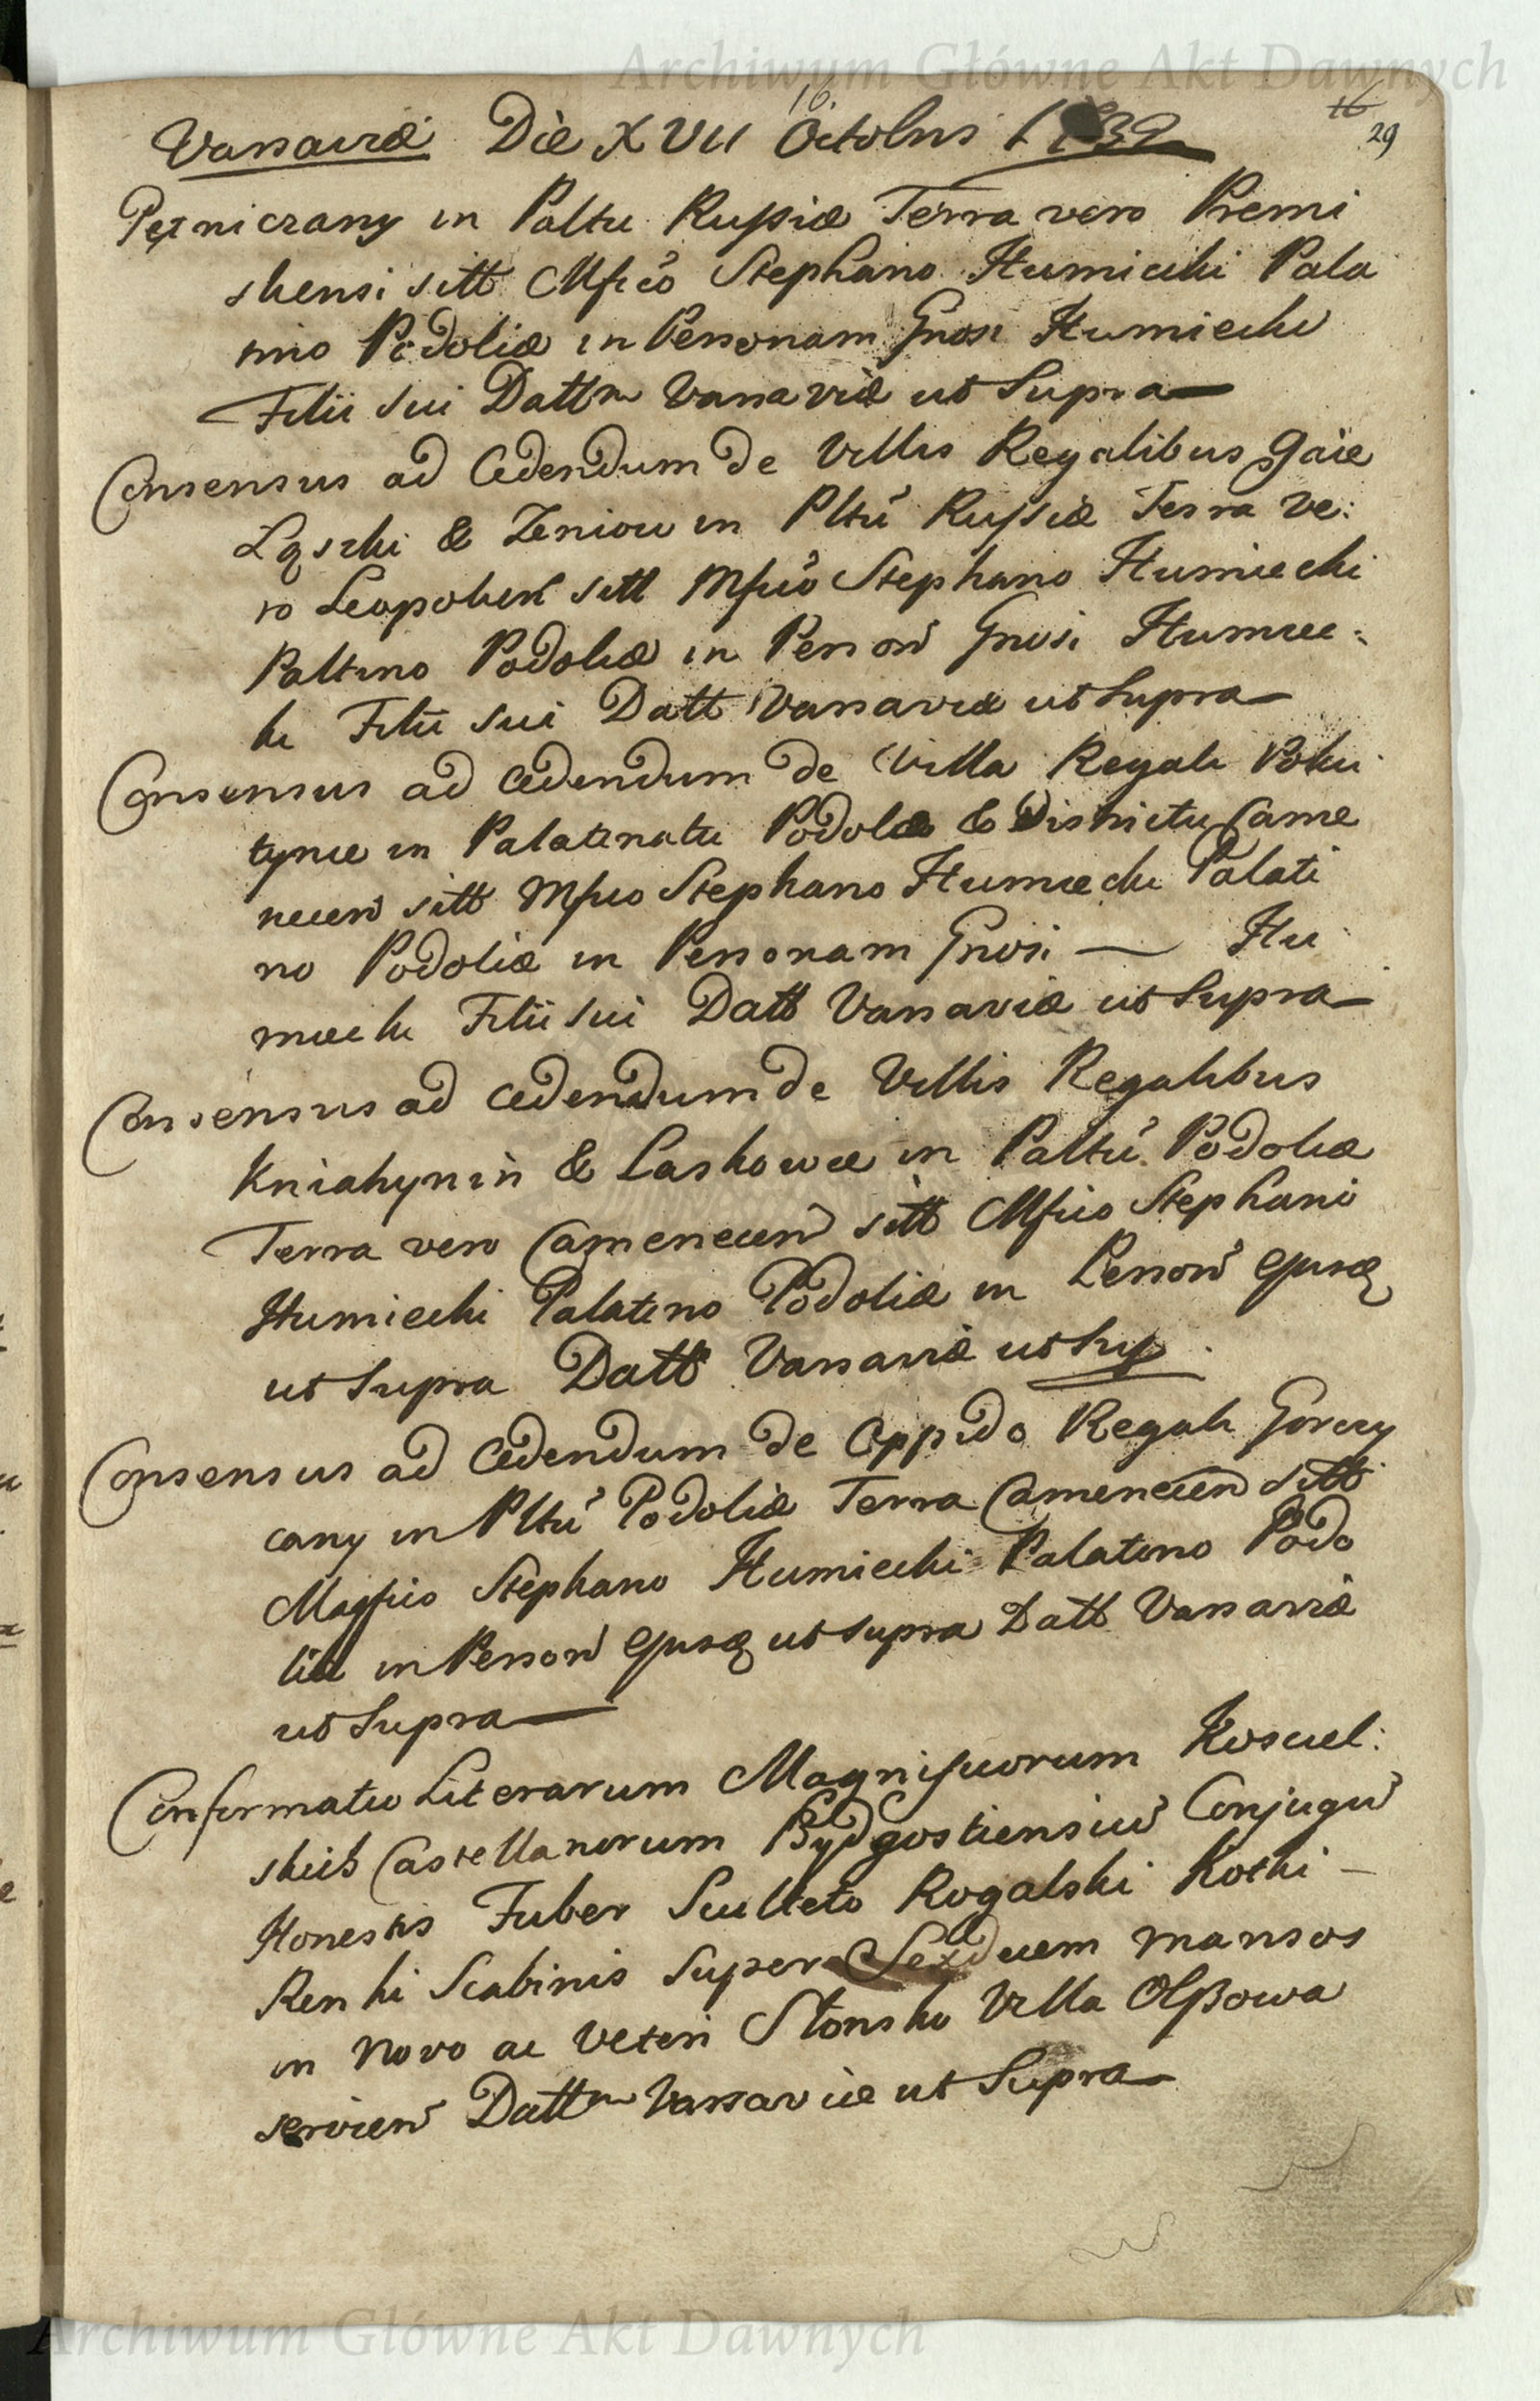 Archiwum Główne Akt Dawnych
16
16
29
Varsaviæ Die XVII Octobris
Pętniczany in Paltu Russiæ Terra vero Premi
sliensi sitt Mfico Stephano Humiecki Pala
tino Podoliæ in Personam Gnosi Humiecki
Filii sui Dattm Varsaviæ ut Supra
Consensus ad Cedendum de Villis Regalibus Gaie
Ląszki & Zeniow in Pltu Russiæ Terra Ve:
ro Leopolien sitt Mfico Stephano Humiecki
Paltino Podoliæ in Person Gnosi Humiec:
ki Filii sui Datt Varsaviæ ut Supra
Consensus ad Cedendum de Villa Regali Poku
tynce in Palatinatu Podoliæ & Districtu Came
necen sitt Mfico Stephano Humiecki Palati
no Podoliæ in Personam Gnosi — Hu
miecki Filii sui Datt Varsaviæ ut Supra
Consensus ad Cedendum de Villis Regalibus
Kniahynin & Laskowce in Paltu Podoliæ
Terra vero Camenecen sitt Mfico Stephano
Humiecki Palatino Podoliæ in Person Ejusq
ut Supra Datt Varsaviæ ut Sup
Consensus ad Cedendum de Oppido Regali Gorczy
cany in Pltu Podoliæ Terra Camenecen sitt
Magfico Stephano Humiecki Palatino Podo
liæ in Person Ejusq ut supra Datt Varsaviæ
ut Supra
Confirmatio Literarum Magnificorum Kosciel:
skich Castellanorum Bydgostiensiu Conjugu
Honestis Fuber Sculteto Rogalski Kotki –
Renki Scabinis Super Sexdecem mansos
in Novo ac Veteri Stonsko Villa Olszowa
servien Dattm Varsaviæ ut Supra
Archiwum Główne Akt Dawnych